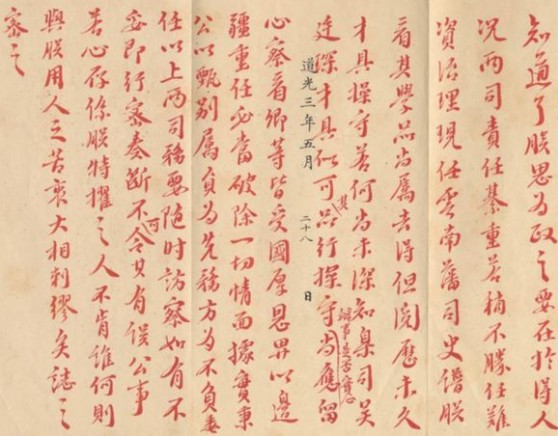 知道了朕思為政之要在於得人
況兩司責任綦重若稍不勝任難
資治理現任雲南藩司史譜朕
看其學品尚屬去得但閱歷未久
才具操守若何尚未深知臬司吴
廷琛才具似可其品行操守辦事是否實心尚應留
道光三年五月 二十八 日
心察看卿等皆受國厚恩畀以邊
疆重任必當破除一切情面據實秉
公以甄别属員為先務方為不負委
任以上兩司務要随時訪察如有不
妥即行密奏斷不可令其有误公事
若心存係朕特擢之人不肯誰何則
與朕用人之苦衷大相刺繆矣誌之
密之